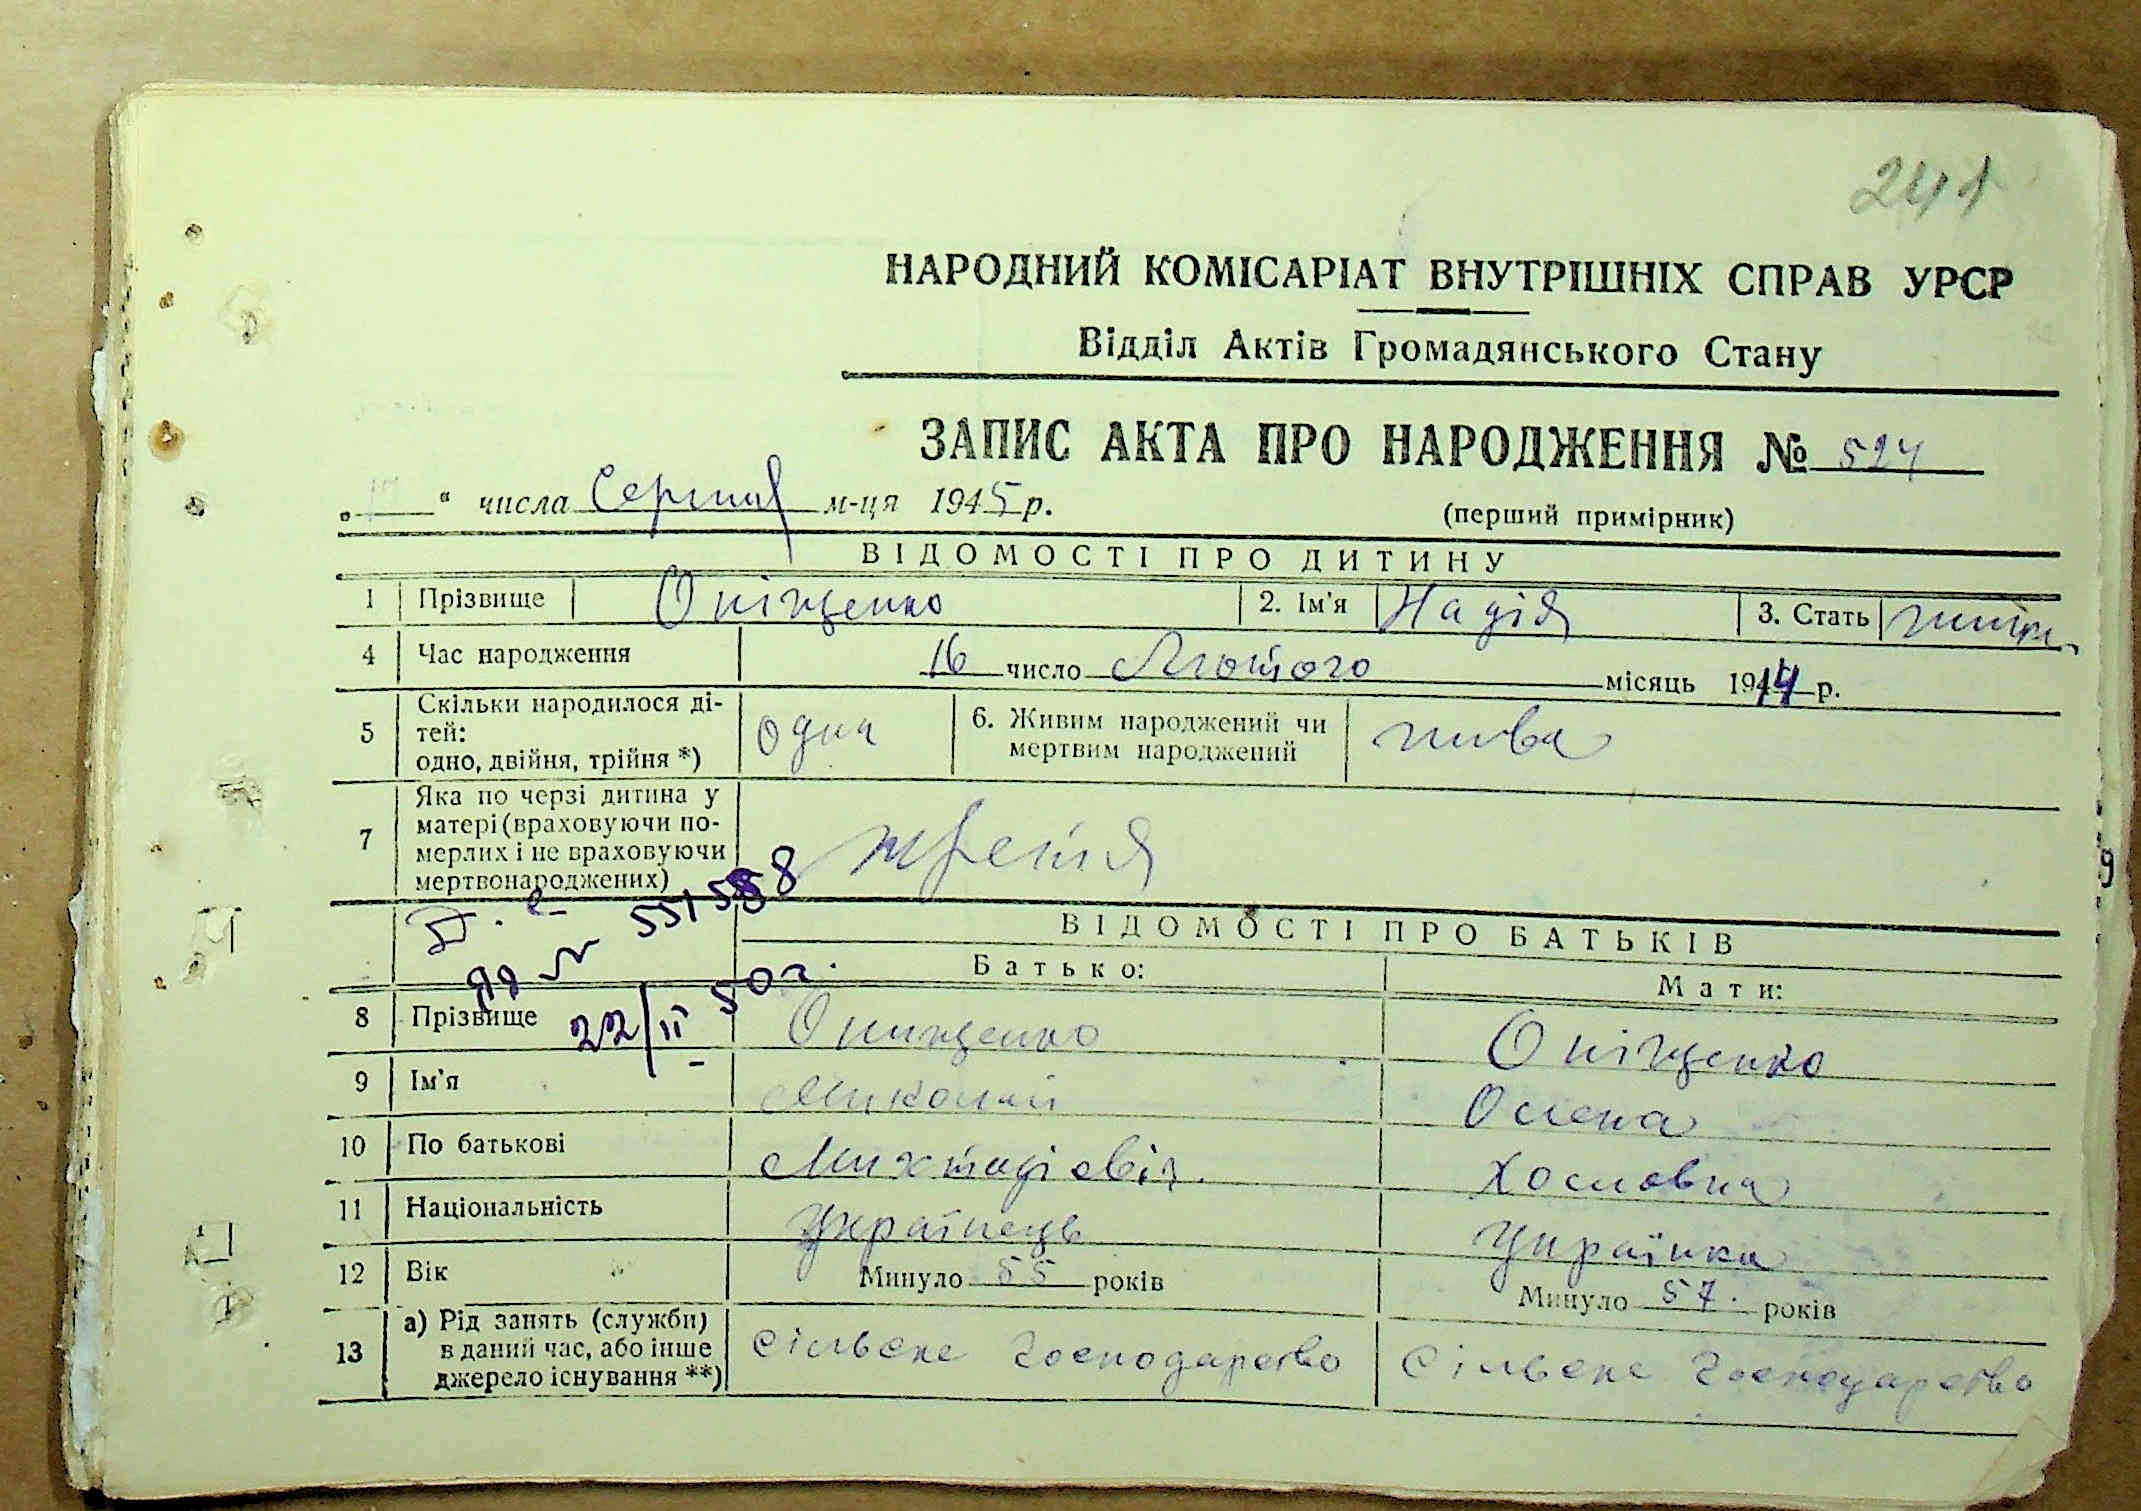 241
НАРОДНИЙ КОМІСАРІАТ ВНУТРІШНІХ СПРАВ УРСР
Відділ Актів Громадянського Стану
ЗАПИС АКТА ПРО НАРОДЖЕННЯ № 524
„ “ числа Серпня м-ця 1945 р.
(перший примірник)
ВІДОМОСТІ ПРО ДИТИНУ
1 Прізвище Оніщенко 2. Ім'я Надія 3. Стать
4 Час народження 16 число Лютого місяць 1914 р.
5 Скільки народилося ді-
тей:
одно, двійня, трійня *) одна 6. Живим народжений чи
мертвим народжений жива
7 Яка по черзі дитина у
матері (враховуючи по-
мерлих і не враховуючи
мертвонароджених) третя
№ 551588
22/II 50 г.
ВІДОМОСТІ ПРО БАТЬКІВ
Батько: Мати:
8 Прізвище Онищенко Оніщенко
9 Ім'я Миколай Олена
10 По батькові
11 Національність Українець Українка
12 Вік Минуло 55 років Минуло 57. років
13 а) Рід занять (службы)
в даний час, або інше
джерело існування **) Сільске господарство Сільске господарство